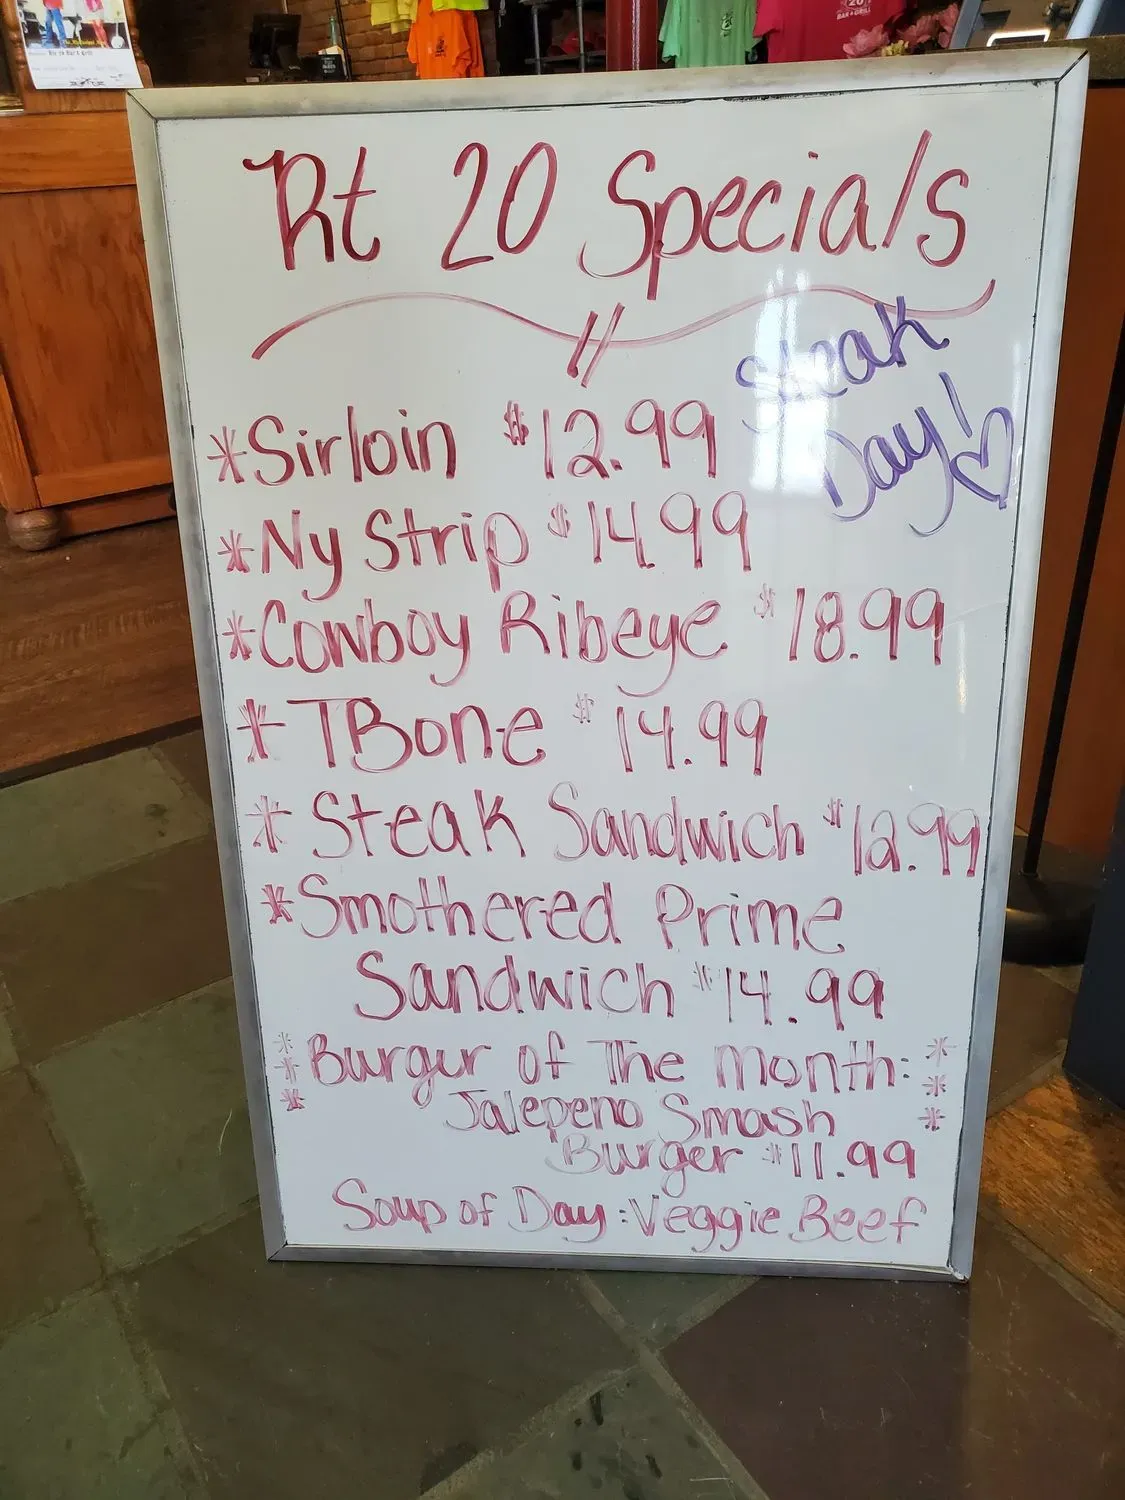 Rt 20 Specials
Steak
Day!
*Sirloin $12.99
*Ny Strip $14.99
*Cowboy Ribeye $18.99
*TBone $14.99
*Steak Sandwich $12.99
*Smothered Prime
Sandwich $14.99
*Burger of The Month:*
*Jalepeno Smash*
*Burger $11.99*
Soup of Day: Veggie Beef
20
BAR & GRILL